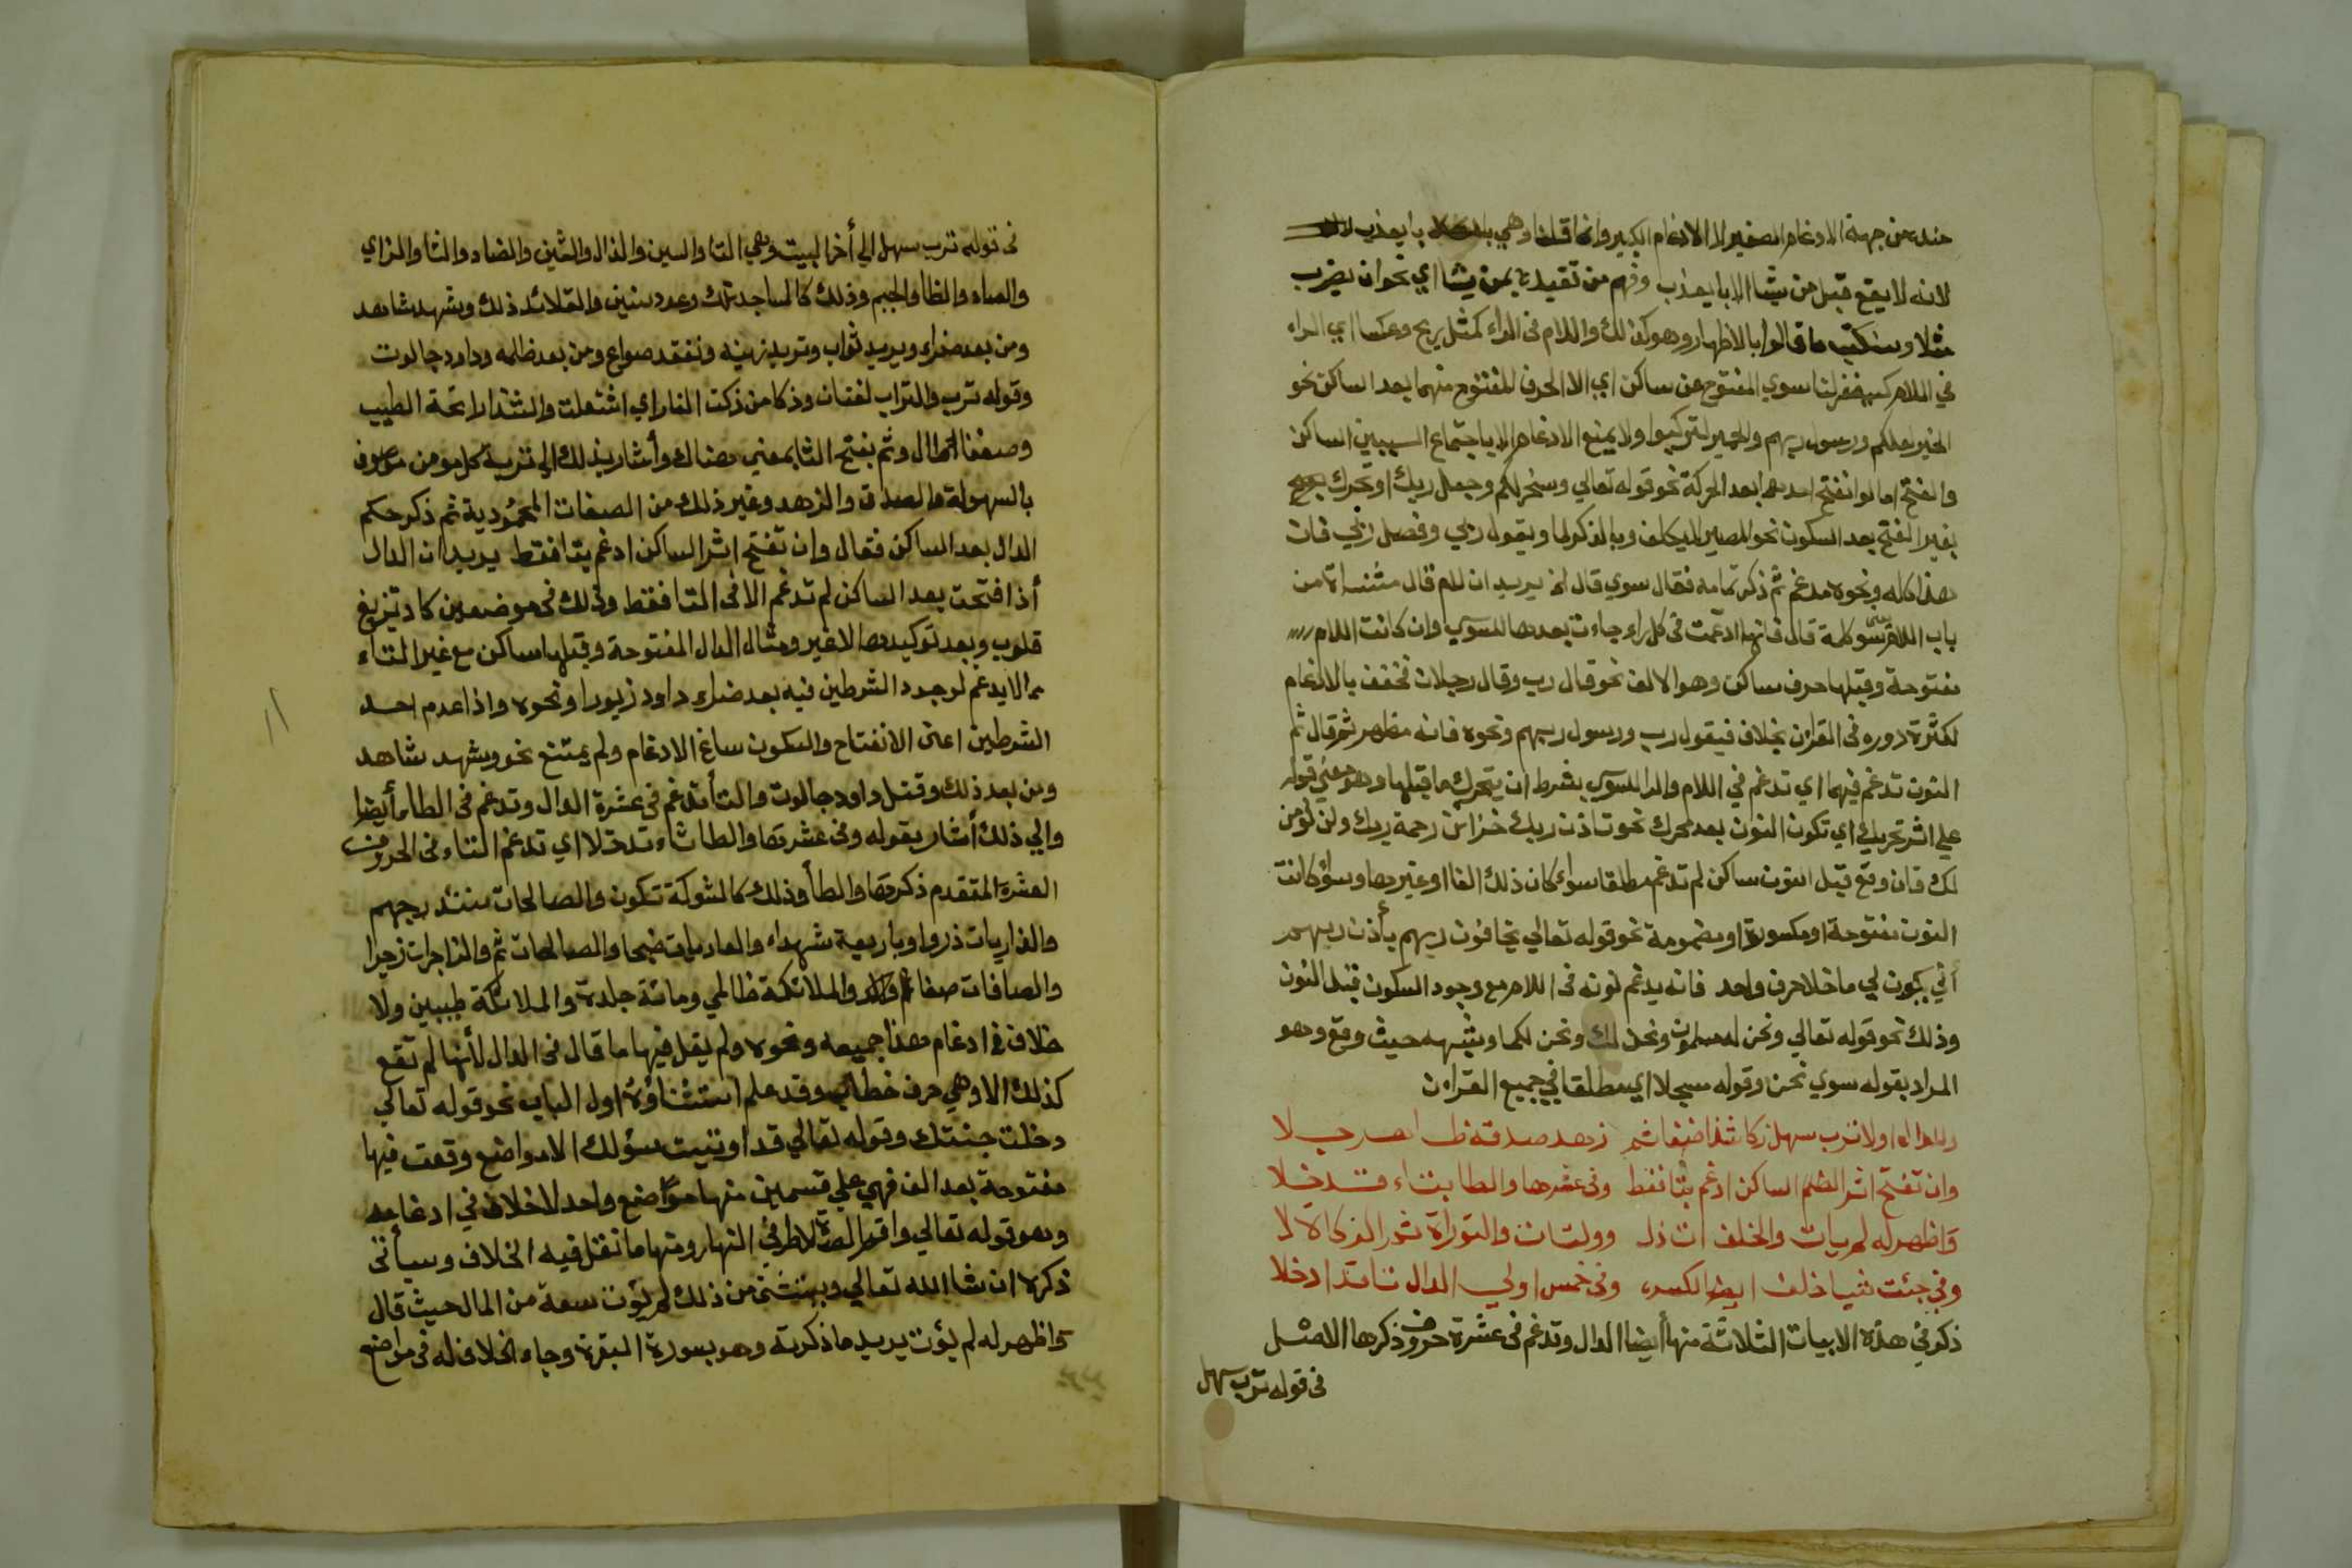 عنده من جهة الادغام الصغير لا الادغام الكبير وانما قلنا وهي با يعذب
لانه لا يقع قبل من يشا الا با يعذب وفهم من تقييده بمن يشا اي نحو ان يضرب
مثلا وسنكتب ما قالوا بالاظهار وهو كذلك واللام في الراء كمثل ريح وعكسا اي الراء
في اللام كسيغفر لنا سوي المفتوح عن ساكن اي الا الحرف المفتوح منهما بعد الساكن نحو
الخير لعلكم ورسول ربهم والحمير لتركبوا ولا يمنع الادغام الا باجتماع السببين الساكن
والفتح اما لو انفتح احدهما بعد الحركة نحو قوله تعالي وسخر لكم وجعل ربك او تحرك
بغير الفتح بعد السكون نحو المصير لا يكلف وبالذكر لما ويقول ربي وفضل ربي فان
هذا كله ونحوه مدغم ثم ذكر تمامه فقال سوي قال لخ يريد ان لام قال مثنناة من
باب اللام سوي كلمة قال فانها ادغمت في كل راء جاءت بعدها للسوسي وان كانت اللام
مفتوحة وقبلها حرف ساكن وهو الالف نحو قال رب وقال رجلان فخفف بالادغام
لكثرة دوره في القران بخلاف فيقول رب ورسول ربهم ونحوه فانه مظهر ثم قال ثم
النون تدغم فيهما اي تدغم في اللام والرا للسوسي بشرط ان يتحرك ما قبلها وهو معني قوله
علي اثر تحريك اي تكون النون بعد محرك نحو تاذن ربك خزائن رحمة ربك ولن نؤمن
لك فان وقع قبل النون ساكن لم تدغم مطلقا سواء كان ذلك الفا او غيرها وسواء كانت
النون مفتوحة او مكسورة او مضمومة نحو قوله تعالي يخافون ربهم بأذن ربهم
أني يكون لي ما خلا حرف واحد فانه يدغم نونه في اللام مع وجود السكون قبل النون
وذلك نحو قوله تعالي ونحن له مسلمون ونحن لك ونحن لكما وشبهه حيث وقع وهو
المراد بقوله سوي نحن وقوله مسجلا اي مطلقا في جميع القران
ولا ترب سهل ذكا شذا ضفا ثم زهد صدقه ظا
وان تفتح اثر الضم الساكن ادغم بتا فقط وفي عشرها والطا بتاء تدخلا
واظهر له لم يات والخلف ات ذل وولتات والتوراة ثم الزكاة لا
وفي جئت شيا خلف ايضا لكسره وفي خمس اولي الدال تا قد ادخلا
ذكر في هذه الابيات الثلاثة منها أيضا الدال وتدغم في عشرة حروف ذكرها الاصل
في قوله ترب سهل
في قوله ترب سهل الي أخر البيت وهي التا والسين والذال والشين والضاد والثا والزاي
والصاد والظا والجيم وذلك كالمساجد تلك وعدد سنين والقلائد ذلك وشهد شاهد
ومن بعد ضراء ويريد ثواب وتريد زينة ونفقد صواع ومن بعد ظلمه وداود جالوت
وقوله ترب والتراب لغتان وذكا من ذكت النار اي اشتعلت والشذا رائحة الطيب
وضفا طال وثم بفتح الثا بمعني هناك وأشار بذلك الي تربة كل مومن موصوف
بالسهولة والصدق والزهد وغير ذلك من الصفات المحمودية ثم ذكر حكم
الدال بعد الساكن فقال وان تفتح اثر الساكن ادغم بتا فقط يريد ان الدال
أذا فتحت بعد الساكن لم تدغم الا في التا فقط وذلك في موضعين كاد تزيغ
قلوب وبعد توكيدها لا غير ومثال الدال المفتوحة وقبلها ساكن مع غير التاء
مما لا يدغم لوجود الشرطين فيه بعد ضراء داود زبورا ونحوه واذا عدم احد
الشرطين اعني الانفتاح والسكون ساغ الادغام ولم يمتنع نحو وشهد شاهد
ومن بعد ذلك وقتل داود جالوت والتأ تدغم في عشرة الدال وتدغم في الطاء أيضا
والي ذلك أشار بقوله وفي عشرها والطا تاء تدخلا اي تدغم التاء في الحروف
العشرة المتقدم ذكرها والطأ وذلك كالشوكة تكون والصالحات سندخلهم
والذاريات ذروا وباربعة شهداء والعاديات ضبحا والصالحات ثم والزاجرات زجرا
والصافات صفا والملائكة ظالمي ومائة جلدة والملائكة طيبين ولا
خلاف في ادغام هذا جميعه ونحوه ولم يقل فيها ما قال في الدال لأنها لم تقع
كذلك الا وهي حرف خطاب وقد علم استثناؤه اول الباب نحو قوله تعالي
دخلت جنتك وقوله تعالي قد اوتيت سؤلك الا مواضع وقعت فيها
مفتوحة بعد الف فهي علي قسمين منها موضع واحد لا خلاف في ادغامه
وهو قوله تعالي واقم الصلاة طرفي النهار ومنها ما نقل فيه الخلاف وسيأتي
ذكره ان شا الله تعالي ويستثني من ذلك لم يؤت سعة من المال حيث قال
واظهر له لم يؤت يريد ما ذكرته وهو بسورة البقرة وجاء الخلاف له في مواضع